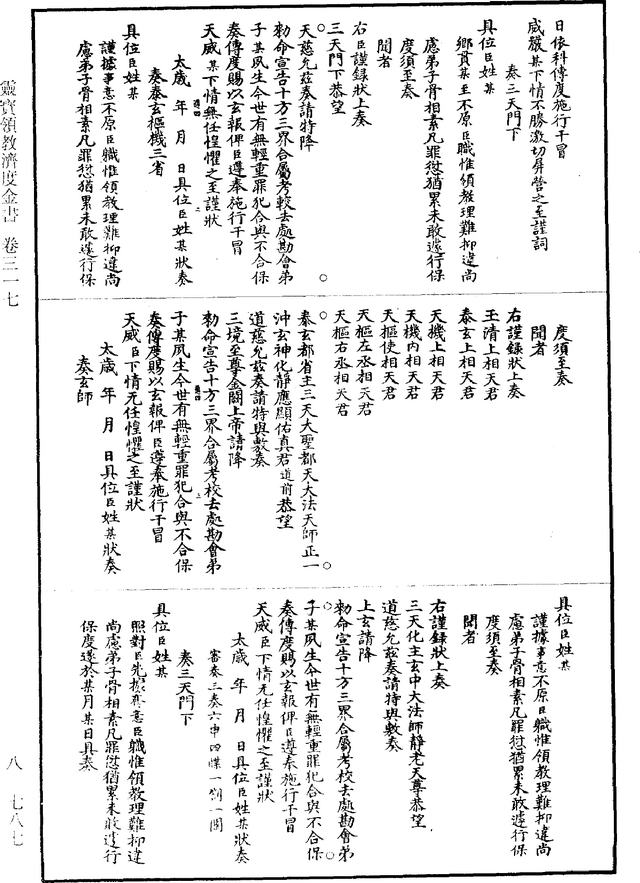 日依科傳度施行干冒
威嚴某下情不勝激切屏營之至謹詞
奏三天門下
具位臣姓某
鄉貫某至不原臣職惟領教理難抑違尚
慮弟子骨相素凡罪愆猶累未敢遽行保
度須至奏
聞者
右臣謹錄狀上奏
三天門下恭望
天慈允茲奏請特降
勑命宣告十方三界合屬考較去處勘會弟
子某夙生今世有無輕重罪犯合與不合保
奏傳度賜以玄報俾臣遵奉施行干冒
天威某下情無任惶懼之至謹狀
太歲年月日具位臣姓某狀奏
奏泰玄樞機三省
具位臣姓某
謹據事意不原臣職惟領教理難抑違尚
慮弟子骨相素凡罪愆猶累未敢遽行保
度須至奏
聞者
右謹錄狀上奏
玉清上相天君
泰玄上相天君
天機上相天君
天機內相天君
天樞使相天君
天樞左丞相天君
天樞右丞相天君
泰玄都省主三天大聖都天大法天師正一
沖玄神化靜應顯佑真君道前恭望
道慈允茲奏請特與敷奏
三境至尊金闕上帝請降
勑命宣告十方三界合屬考校去處勘會弟
子某夙生今世有無輕重罪犯合與不合保
奏傳度賜以玄報俾臣遵奉施行干冒
天威臣下情无任惶懼之至謹狀
太歲年月日具位臣姓某狀奏
奏玄師
具位臣姓某
謹據事意不原臣職惟領教理難抑違尚
慮弟子骨相素凡罪愆猶累未敢遽行保
度須至奏
聞者
右謹錄狀上奏
三天化主玄中大法師靜老天尊恭望
道慈允茲奏請特與敷奏
上玄請降
勑命宣告十方三界合屬考校去處勘會弟
子某夙生今世有無輕重罪犯合與不合保
奏傳度賜以玄報俾臣遵奉施行干冒
天威臣下情无任惶懼之至謹狀
太歲年月日具位臣姓某狀奏
審奏三奏六申四牒一劄一關
奏三天門下
具位臣姓某
照對臣先據齊意臣職惟領教理難抑違
尚慮弟子骨相素凡罪愆猶累未敢遽行
保度遂於某月某日具奏
靈寶領教濟度金書 卷三一七
八 七八七